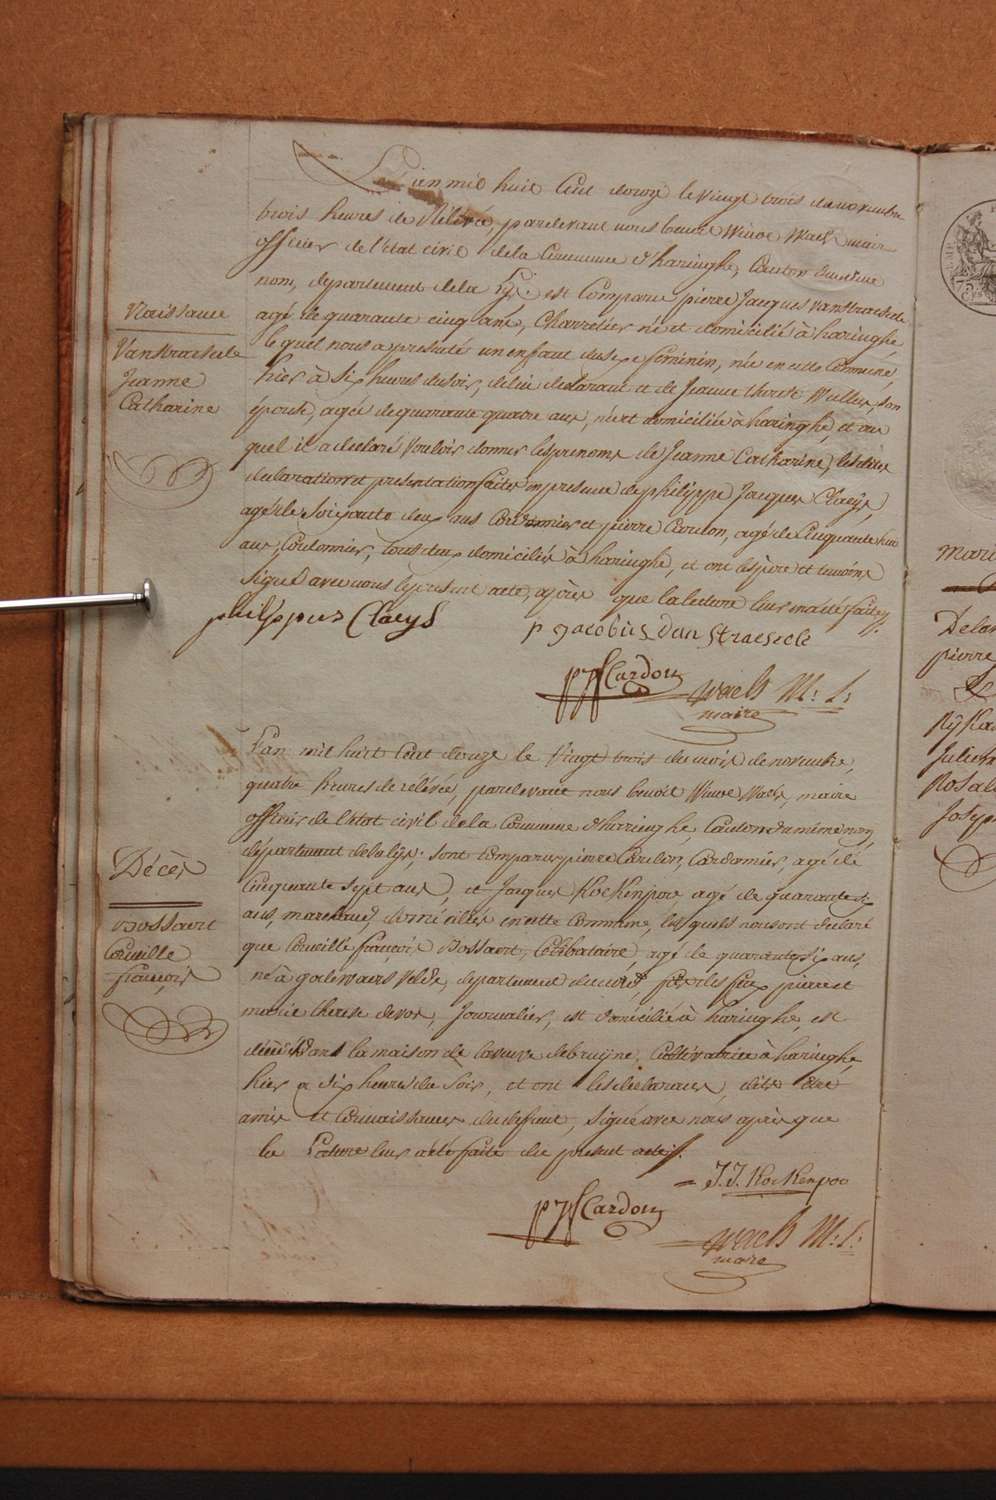 Naissance
VanStraeseele
Jeanne
Catharine
L'an mil huit Cent douze le vingt trois de novembre
trois heures de rélévée, pardevant nous benoit Winoc Waels maire
officier de l'état civil de la Commune d'haringhe, Canton du même
nom, département de la Lys. est Comparu pierre Jacques vanstraeseele
agé de quarante cinq ans, Charretier né et domicilié à haringhe
lequel nous a presenté un enfant du sexe feminin, née en cette Commune,
hier à six heures du soir, de lui declarant et de Jeanne therese Wullus, son
épouse, agée de quarante quatre ans, née et domiciliée à haringhe, et au
quel il a declaré vouloir donner les prenoms de Jeanne Catharine, lesdites
declaration et presentation faites en presence de philippe Jacques Claeys,
agé de soixante deux ans Cordonnier et pierre Cardon, agé de Cinquante huit
ans, Cordonnier, tous deux domiciliés à haringhe, et ont les père et temoins
signé avec nous le present acte, après que la lecture leur en a été faite.
philippus Claeys
p Jacobus Van Straeseele
pjf Cardon
Waels M: d:
maire
Décès
Bossaert
Corneille
françois
L'an mil huit Cent douze le vingt trois du mois de novembre,
quatre heures de rélévée, pardevant nous benoit Winoc Waels, maire
officier de l'état civil de la Commune d'haringhe, Canton du même nom,
département de la lys. sont Comparus pierre Cardon, Cordonnier, agé de
Cinquante sept ans, et Jacques Kockenpoo agé de quarante
ans, marchand, domiciliés en cette Commune, lesquels nous ont declaré
que Corneille françois Bossaert, Célibataire, agé de quarante six ans,
né à godewaersvelde, departement du nord, fils de feu pierre et
marie therese devos, Journalier, est domicilié à haringhe, est
decedé dans la maison de la veuve debruyne, Cultivatrice à haringhe,
hier a six heures du soir, et ont les declarans, dits être
amis et Connaissances du deffunt, signé avec nous après que
la Lecture leur a été faite du present acte.
J. J. Kockenpoo
pjf Cardon
Waels M: d:
maire